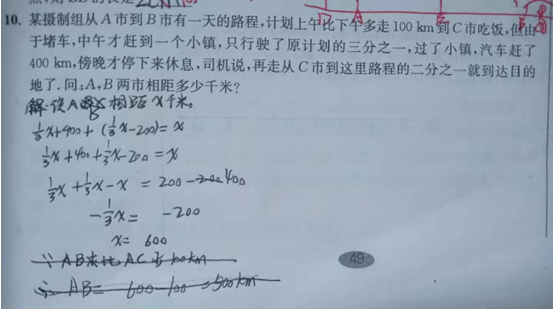 10. 某摄制组从 A 市到 B 市有一天的路程,计划上午比下午多走 100 km 到 C 市吃饭,但由
于堵车,中午才赶到一个小镇,只行驶了原计划的三分之一,过了小镇,汽车赶了
400 km,傍晚才停下来休息,司机说,再走从 C 市到这里路程的二分之一就到达目的
地了.问:A,B 两市相距多少千米?
解:设A B 相距 x千米。
⅓x+400+(⅓x-200)=x
⅓x+400+⅓x-200=x
⅓x+⅓x-x = 200-400
-⅓x= -200
x= 600
∵ AB比AC多100km
∴ AB= 600-100=500km
49